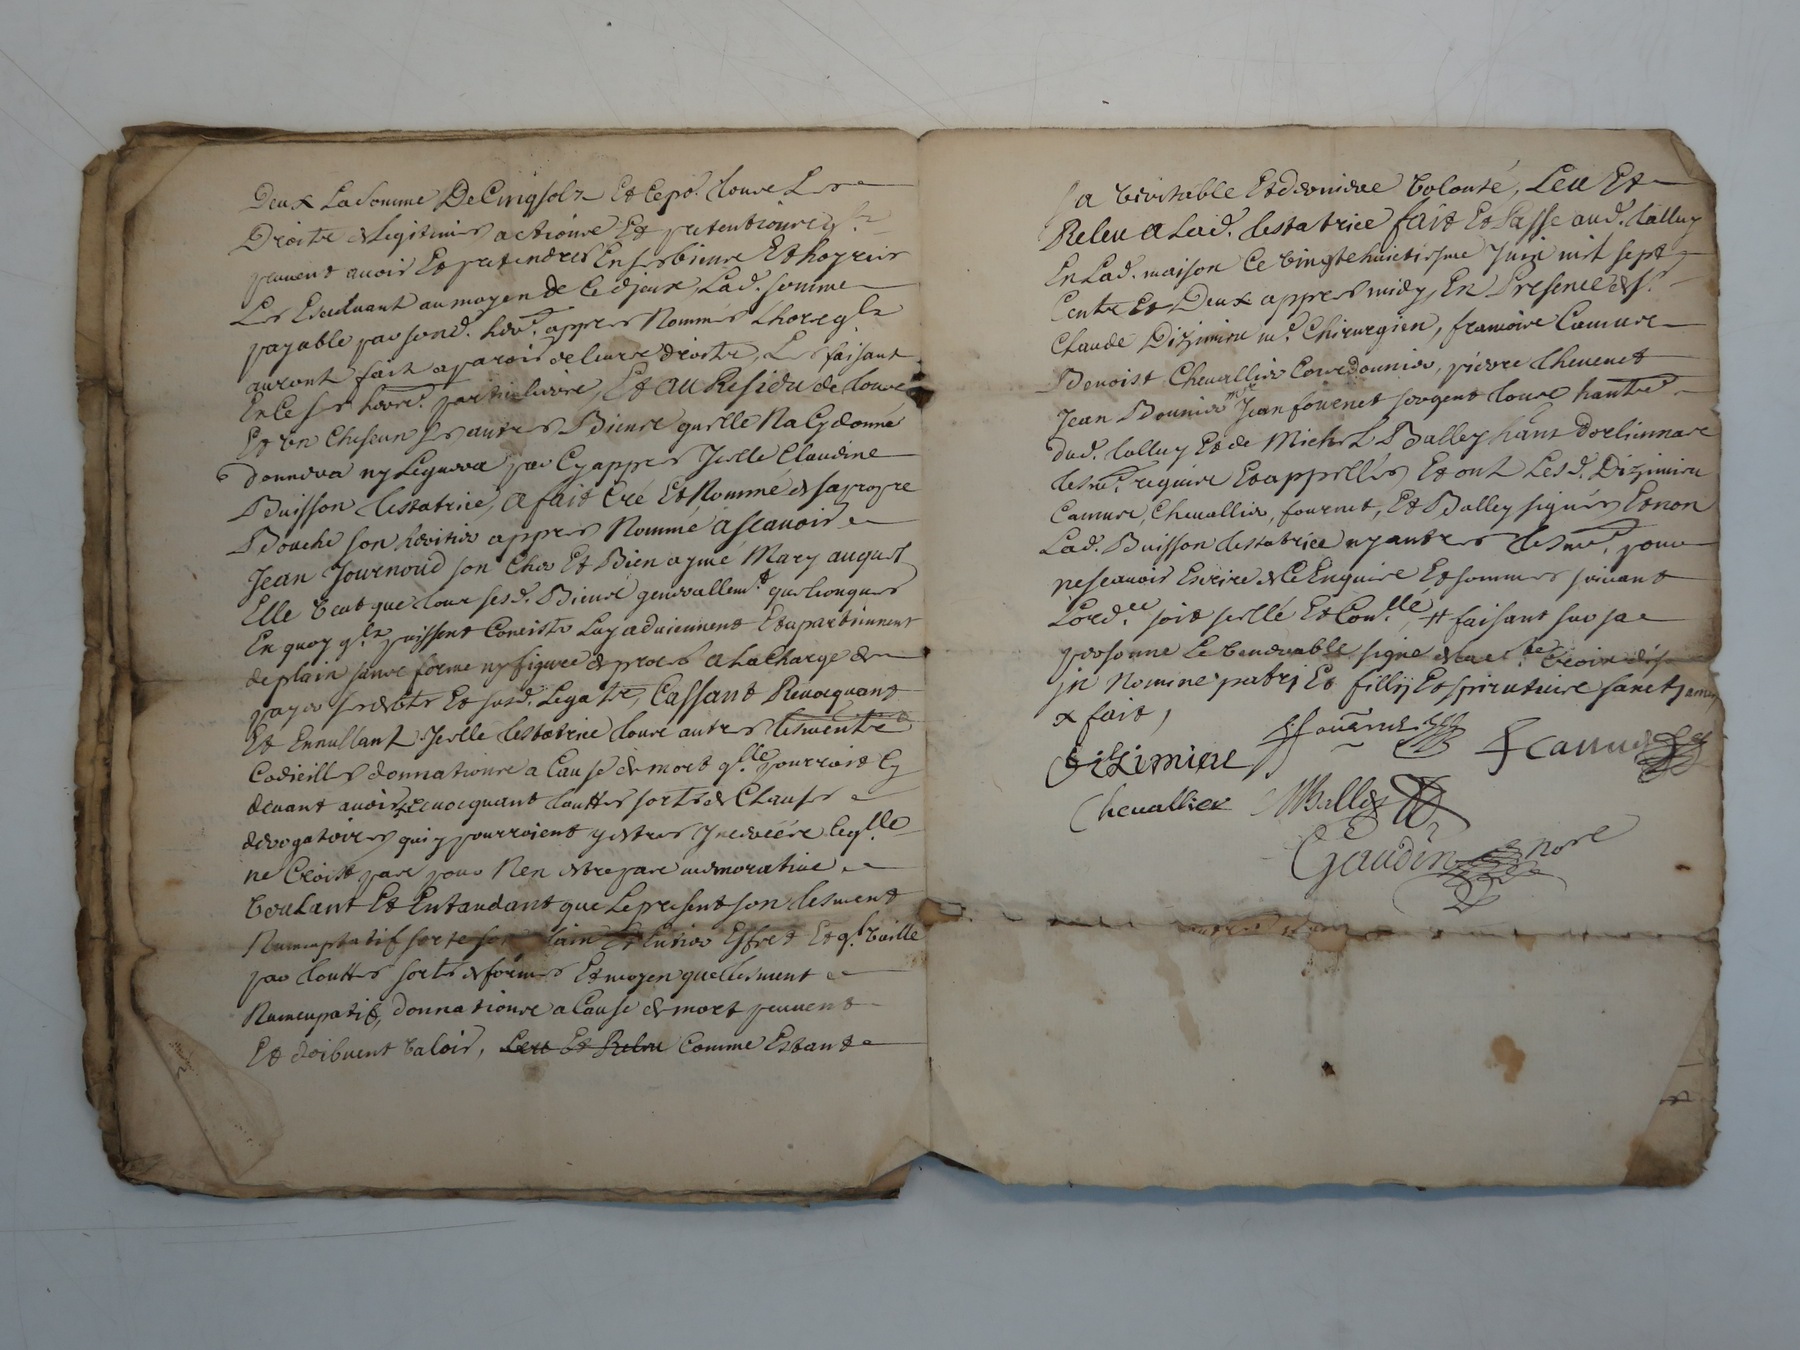 Deux La somme De Cinq solz Et ce po.r tous Les
Droitz & Legitimes actions Et pretentions q.lz
peuvent avoir Et pretendres En ses biens Et hoyries
Les Excluant au moyen de Ce d'jceux Lad. somme
payable par sond. her.r appres Nommés Lhors q.lz
auront fait aparoir de leurs droitz, Les faisant
En Ce ses heers particuliers, Et au Residu de tous
Et un Chascun ses autres Biens quelle Na Cy donné
donnera ny Leguera par Cy appres Jcelle Claudine
Buisson testatrice, a fait Cré Et Nommé de sa propre
Bouche son heritier appres Nommé ascavoir
Jean Journoud son Cher Et Bien aymé Mary auquel
Elle veut que tous sesd. Biens generallem.t quelconques
En quoy q.lz puissent Concister Luy adviennent Et apartiennent
de plain sans forme ny figure de proces a La Charge de
payer ses debtz Et susd. Legatz, Cassant Revocquant
Et Ennullant Jcelle testatrice tous autres testmentz
Codicilles donnations a Cause de mort q.lle pourroit Cy
devant avoir Revocquant touttes sortes de Clauses
derogatoires qui y pourroient y estres Jnserées Ceq.lle
ne Croist pas pour Nen estre pas memorative
Voulant Et Entandant que Le present son testment
Nuncupatif sorte son plain Et Entier Effect Et q.l vaille
par touttes sortes de formes Et moyen que testment
Nuncupatif, donnations a Cause de mort peuvent
Et doibvent valoir, Leu Et Releu Comme Estant
Sa veritable Et derniere volonté, Leu Et
Releu a Lad. testatrice fait Et Passe aud. talluy
En Lad. maison Ce vingt huictiesme Juin mil sept
Centz Et Deux appres midy, En Presence de s.r
Claude Dizimieu m.e Chirurgien, francois Camus
Benoist Chevallier Courdonnier, pierre thevenet
Jean Bounier m Jean fournet sergent tous habitz
dud. talluy Et de Michel Balley habt Dorliennas
tesm.s requis Et appellés Et ont Lesd. Dizimieu
Camus, Chevallier, fournet, Et Balley signés Et non
Lad. Buisson testatrice ny autres tesm.s pour
ne scavoir Escrire de Ce Enquis Et sommés suivant
Lord.ce soit scellé Et Con.llé, # faisant sur sa
personne Le venerable signe de la S.te Croix dis
jn Nomine patrj Et fillij Et spiritus sanctj amen
x fait,
Dizimieu fournet F Camus
Chevallier MBalley
Gaudin no.re